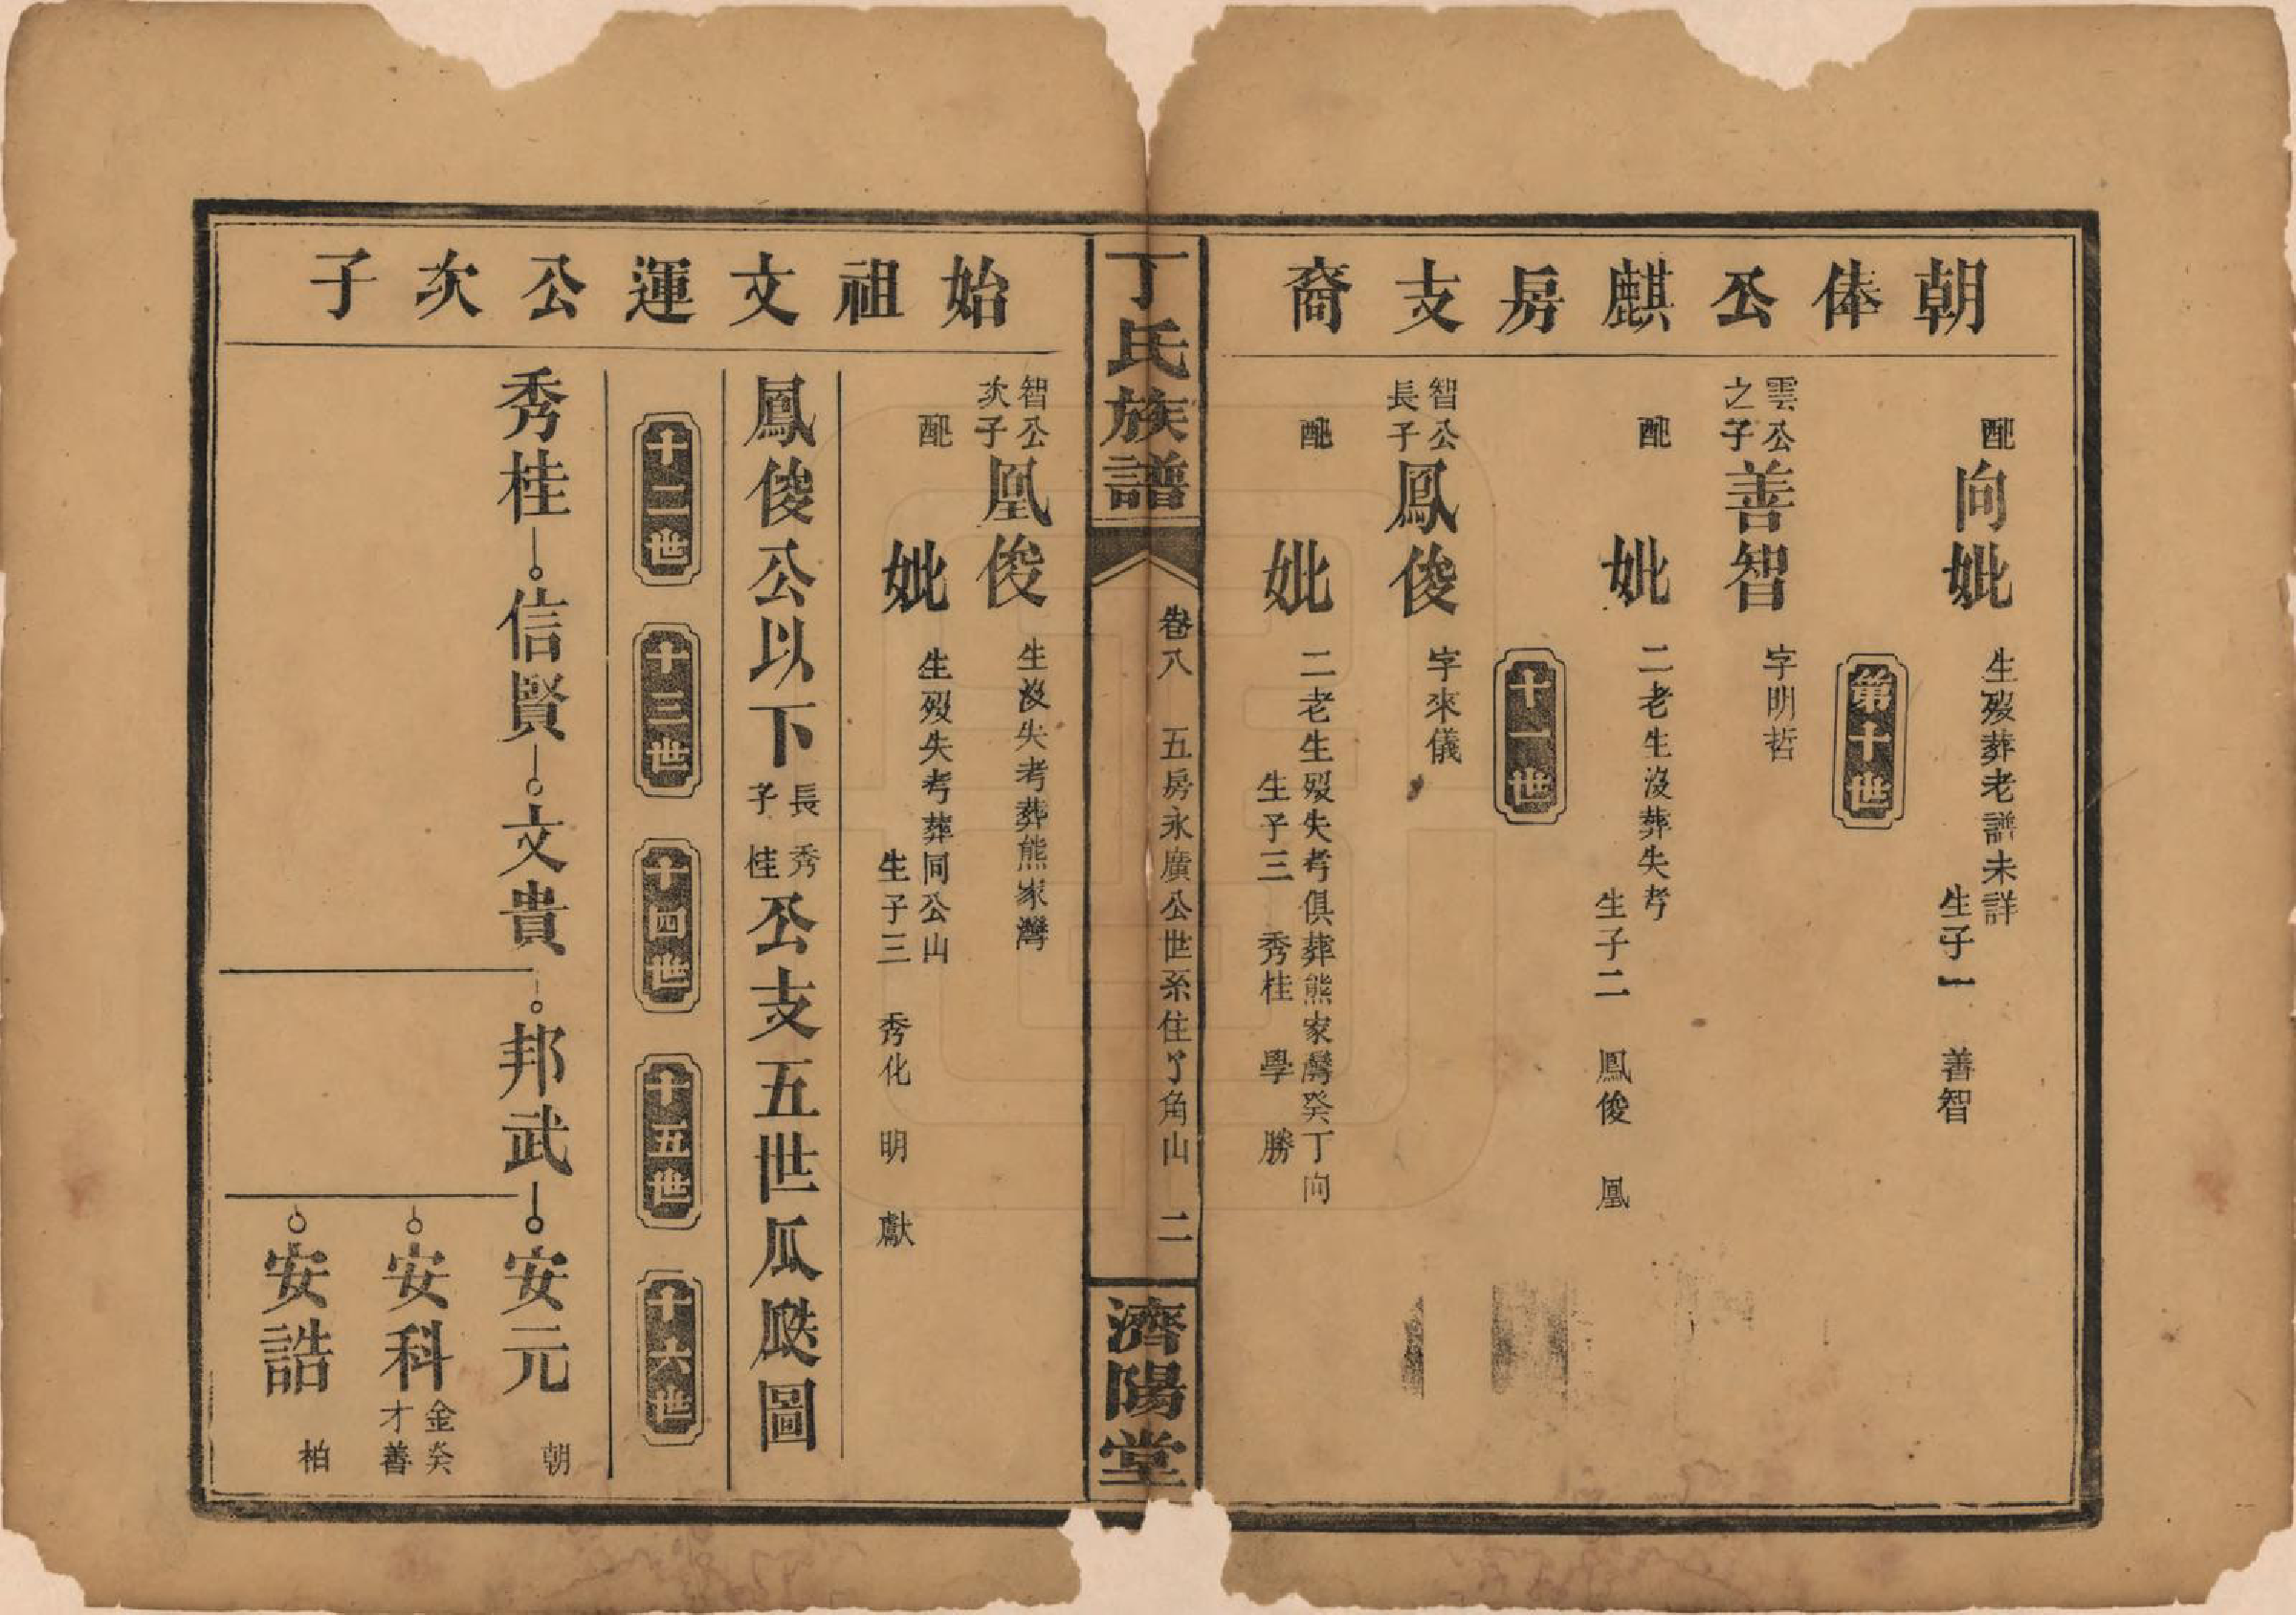 朝俸公麒房支裔
配向妣 生歿葬老譜未詳
生子一 善智
第十世
雲公
之子
善智 字明哲
配 妣 二老生沒葬失考
生子二 鳳俊 凰
十一世
智公
長子
鳳俊 字來儀
配 妣 二老生歿失考俱葬熊家灣癸丁向
生子三 秀桂 學 勝
丁氏族譜 卷八 五房永廣公世系住丫角山 二 濟陽堂
始祖文運公次子
智公
次子
凰俊 生沒失考葬熊家灣
配 妣 生歿失考葬同公山
生子三 秀化 明 獻
鳳俊公以下長子秀桂公支五世瓜瓞圖
十二世 十三世 十四世 十五世 十六世
秀桂 信賢 文貴 邦武 安元 朝
安科 金癸
才善
安誥 柏